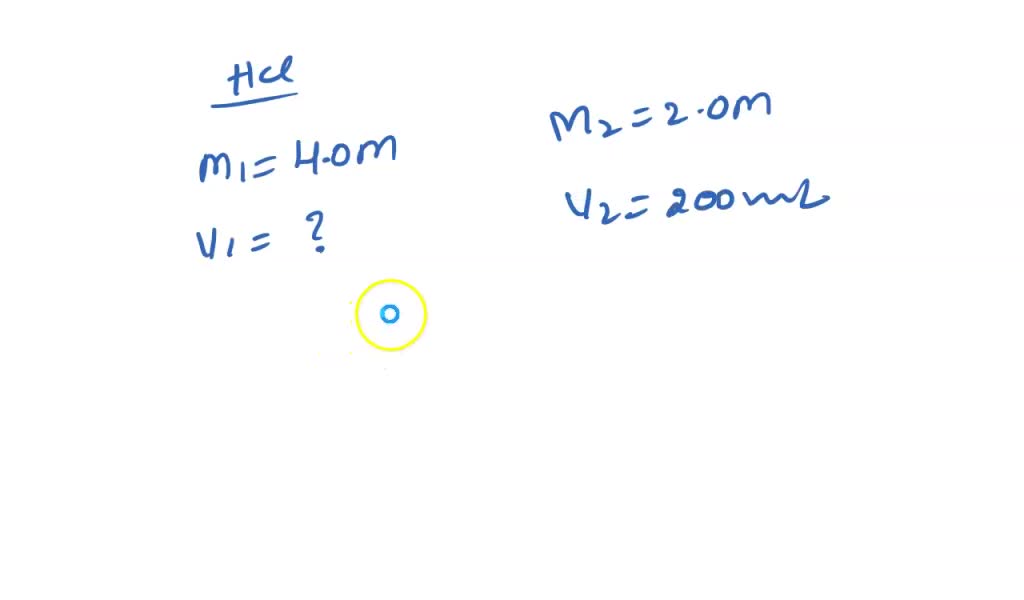 HCl
M1 = 4.0M
V1 = ?
M2 = 2.0M
V2 = 200mL